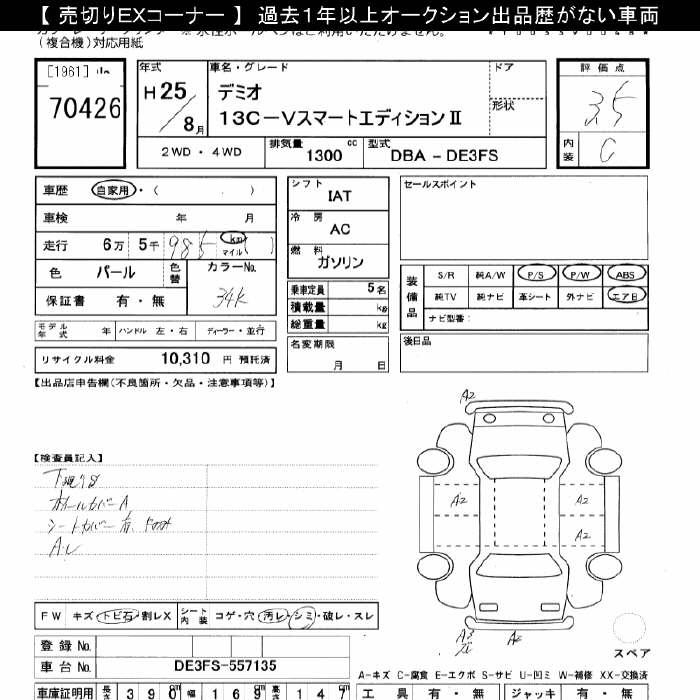 【 売切りEXコーナー 】 過去1年以上オークション出品歴がない車両
(複合機)対応用紙
[1961]
70426
年式
H 25 / 8 月
車名・グレード
デミオ
13C-VスマートエディションⅡ
ドア
形状
2WD ・ 4WD
排気量 1300 cc
型式 DBA - DE3FS
評 価 点
3.5
内装 C
車歴 自家用 ・ ( )
車検 年 月
走行 6万 5千 985 km マイル ( )
色 パール 色替 カラーNo.
34K
保証書 有 ・ 無
モデル年式 年 ハンドル 左 ・ 右 ディーラー ・ 並行
リサイクル料金 10,310 円 預託済
シフト IAT
冷房 AC
燃料 ガソリン
乗車定員 5 名
積載量 kg
総重量 kg
名変期限
月 日
セールスポイント
装備品
S/R 純A/W P/S P/W ABS
純TV 純ナビ 革シート 外ナビ エアB
ナビ型番:
後日品
【出品店申告欄(不良箇所・欠品・注意事項等)】
【検査員記入】
ホールカバーA
シートカバー有
A2
A2
A2
A2
A2
スペア
FW キズ・トビ石・割レX シート内装 コゲ・穴・汚レ・シミ・破レ・スレ
登録 No.
車台 No. DE3FS-557135
A-キズ C-腐食 E-エクボ S-サビ U-凹ミ W-補修 XX-交換済
車庫証明用 長さ 390 cm 幅 169 cm 高さ 147 cm
工 具 有 ・ 無 ジャッキ 有 ・ 無